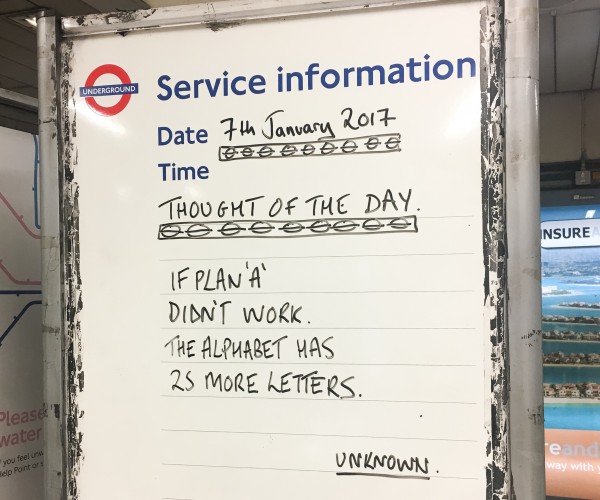 UNDERGROUND
Service information
Date 7th January 2017
Time
THOUGHT OF THE DAY.
IF PLAN 'A'
DIDN'T WORK.
THE ALPHABET HAS
25 MORE LETTERS.
UNKNOWN.
Please
water
you feel
Help Point or
NSURE